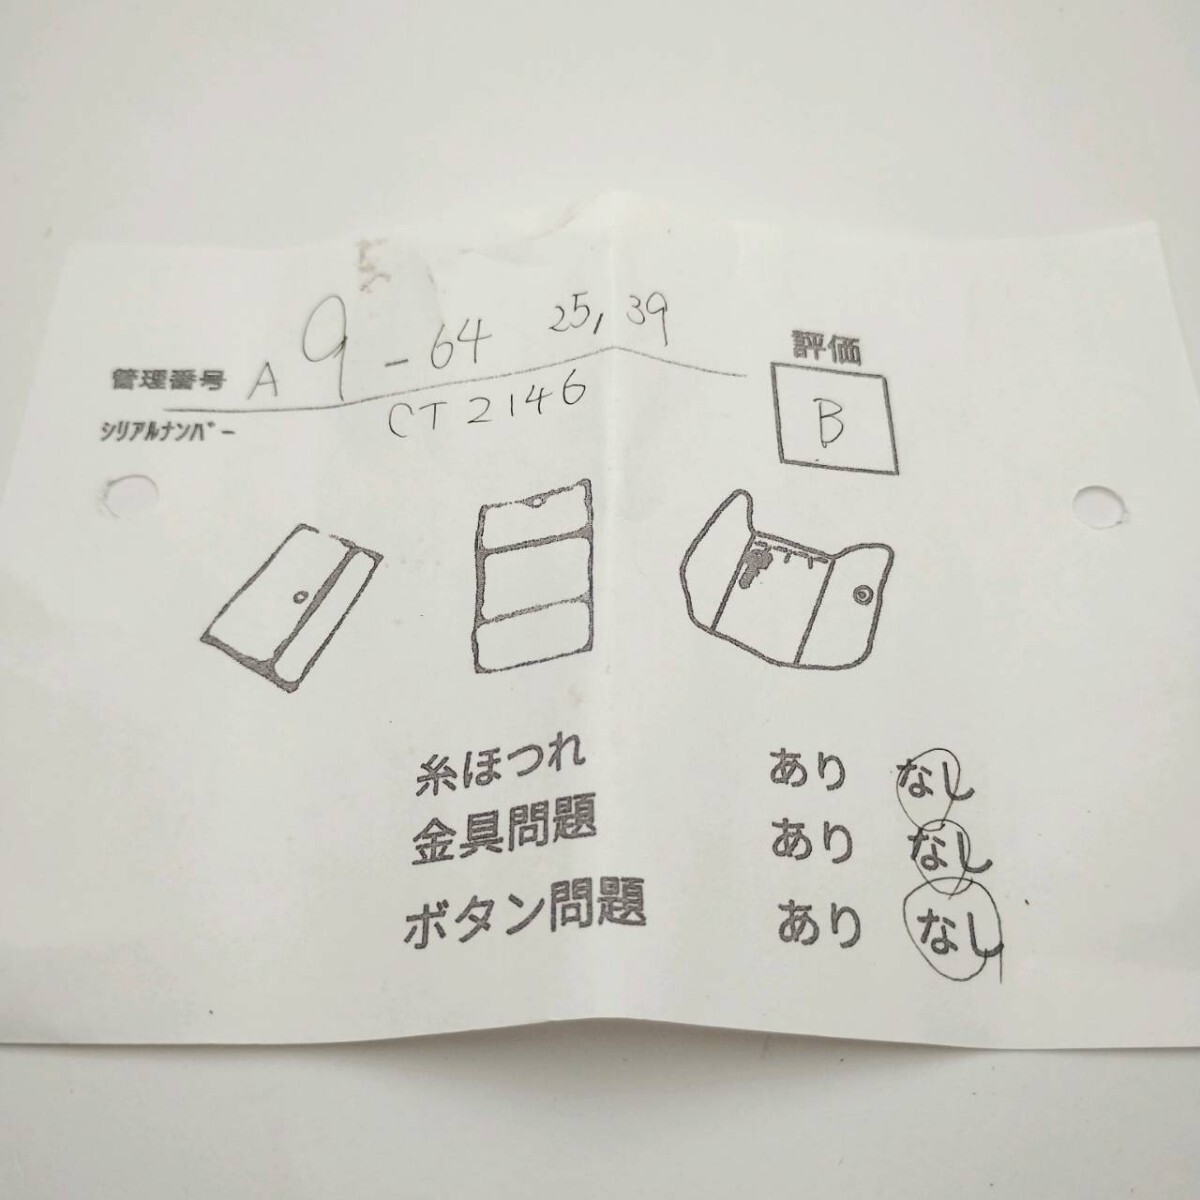 管理番号 A 9 - 64 25, 39
シリアルナンバー CT2146
評価
B
糸ほつれ あり なし
金具問題 あり なし
ボタン問題 あり なし